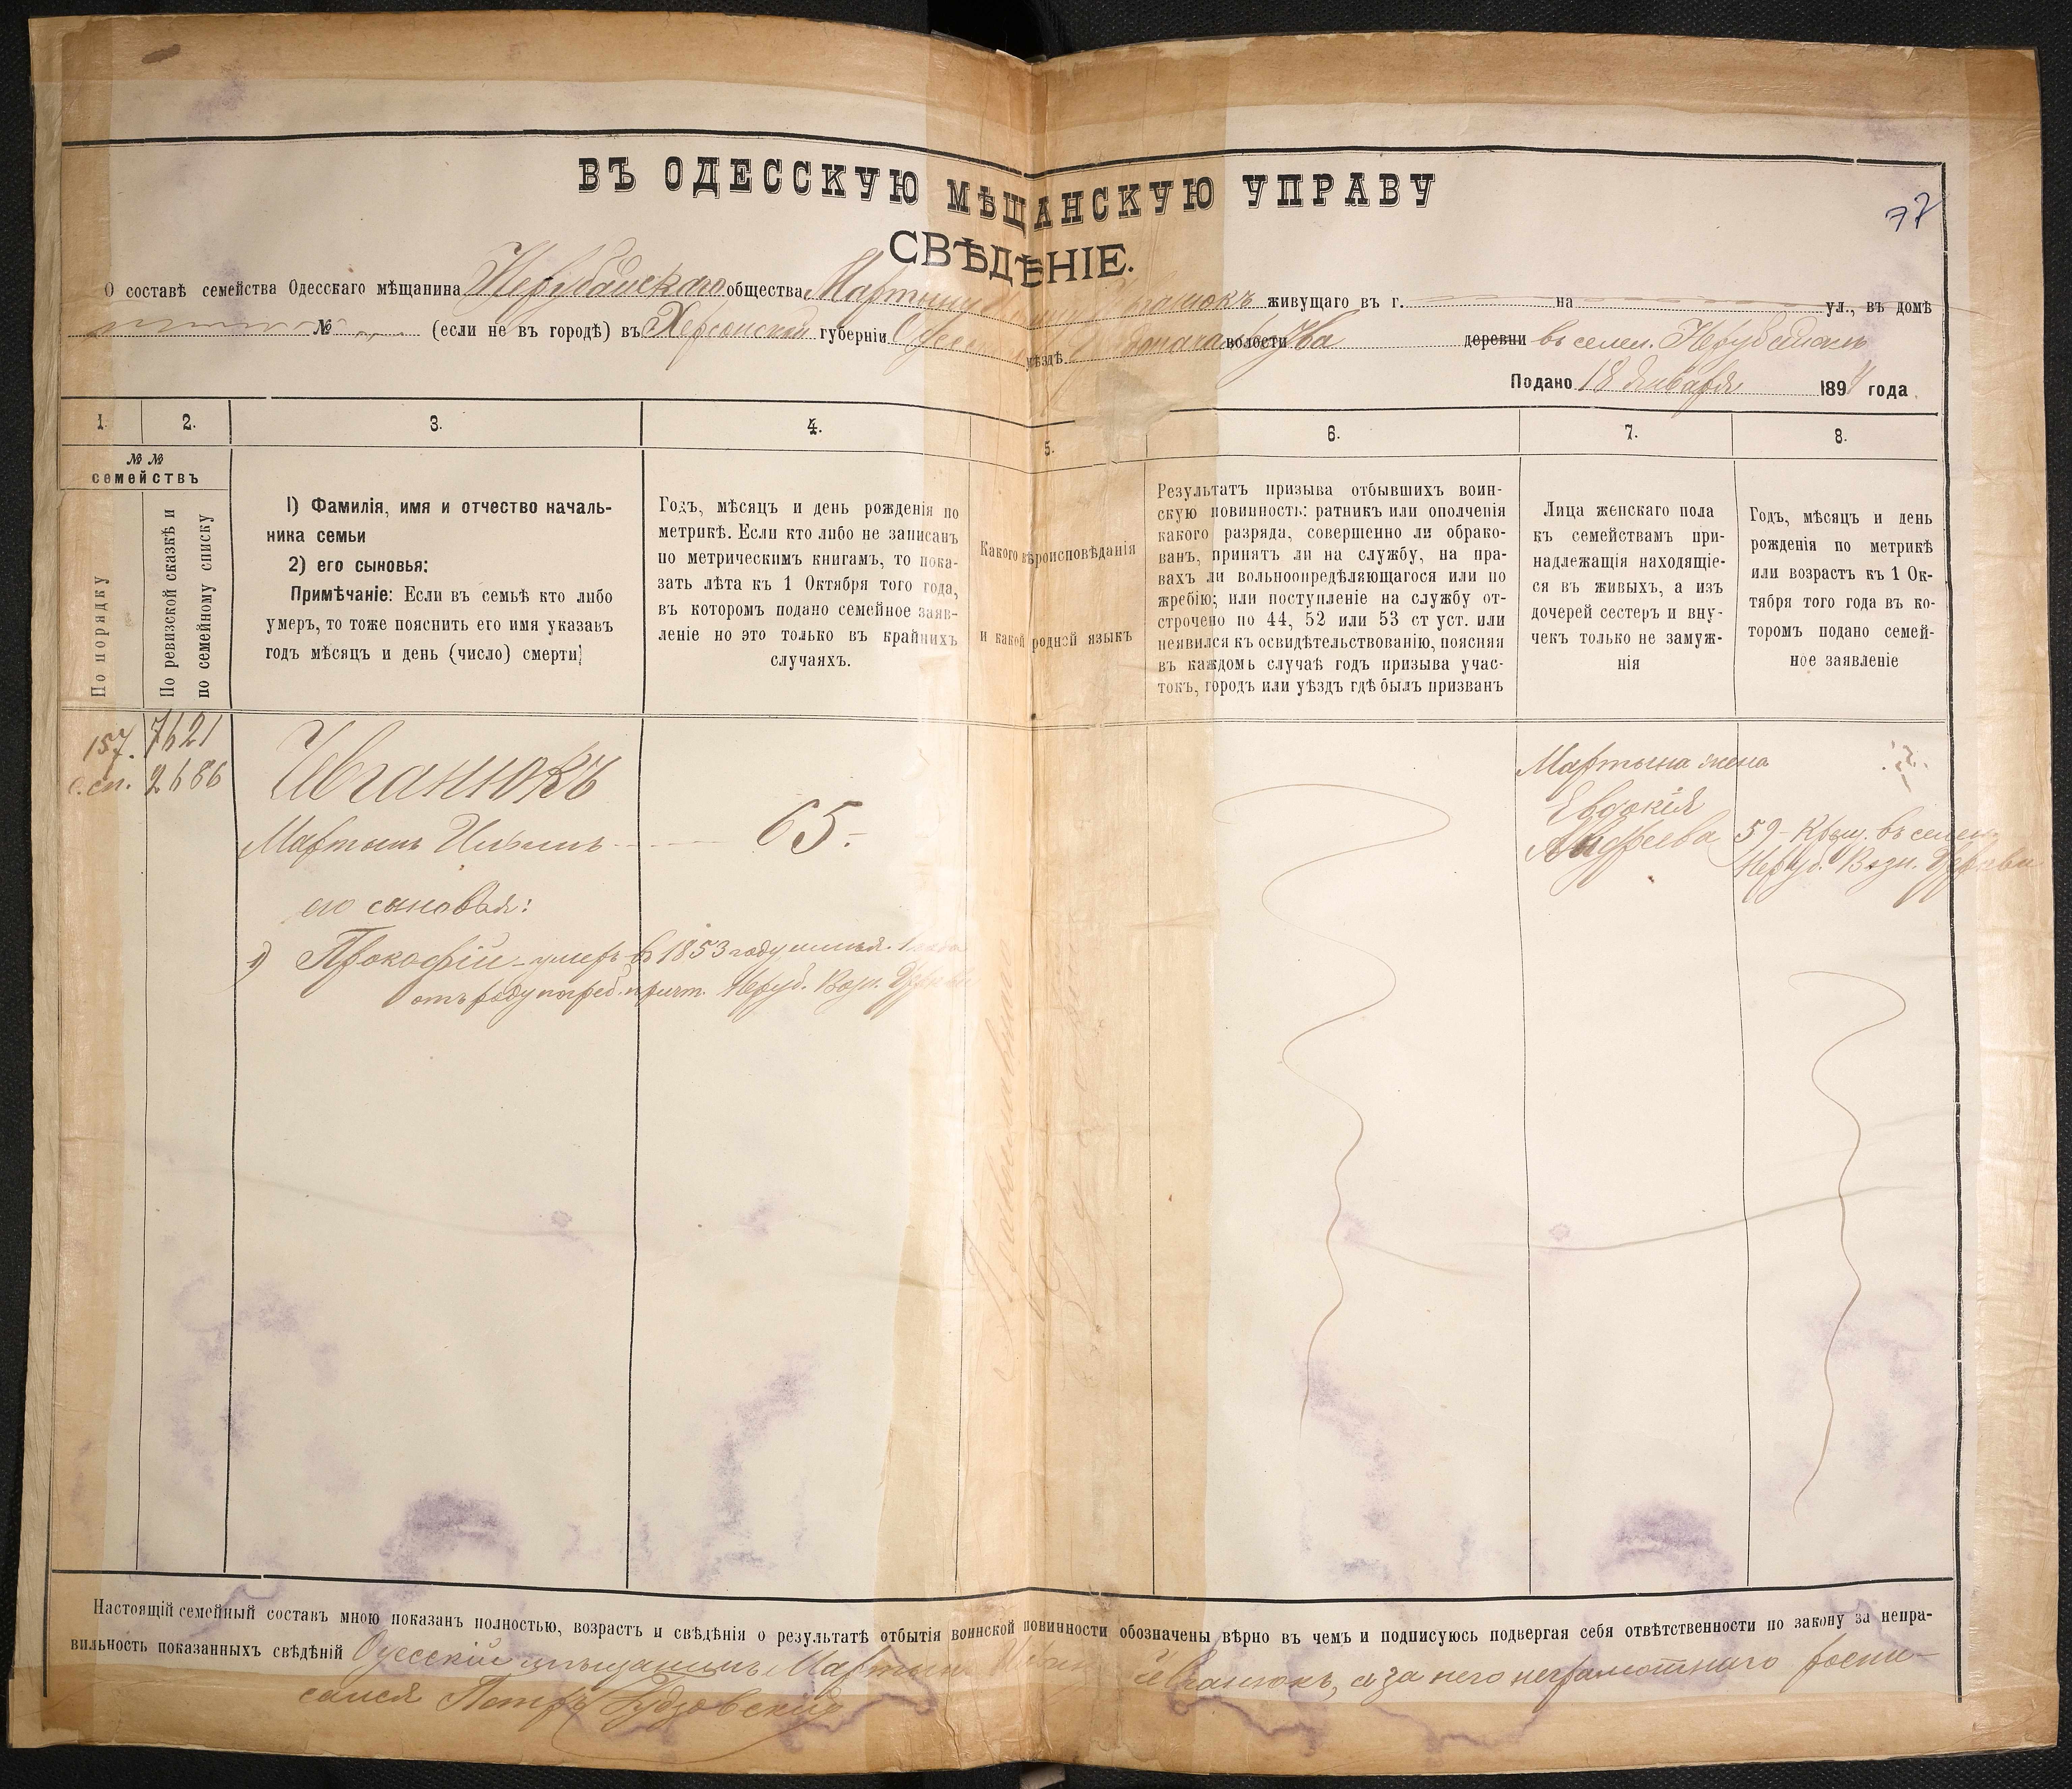 ВЪ ОДЕССКУЮ МѢЩАНСКУЮ УПРАВУ
77
СВѢДѢНІЕ.
О составѣ семейства Одесскаго мѣщанина Нерубайскаго общества Мартину живущаго въ г. на ул., въ домѣ
№ (если не въ городѣ) въ Херсонской губерніи уѣздѣ волости деревни въ селен.
Подано 18 Января 1894 года
1. 2. 3. 4. 5. 6. 7. 8.
№ № семействъ
По порядку
По ревизской сказкѣ и по семейному списку
1) Фамилія, имя и отчество началь-
ника семьи
2) его сыновья:
Примѣчаніе: Если въ семьѣ кто либо
умеръ, то тоже пояснить его имя указавъ
годъ мѣсяцъ и день (число) смерти;
Годъ, мѣсяцъ и день рожденія по
метрикѣ. Если кто либо не записанъ
по метрическимъ книгамъ, то пока-
зать лѣта къ 1 Октября того года,
въ которомъ подано семейное заяв-
леніе но это только въ крайнихъ
случаяхъ.
Какого вѣроисповѣданія
и какой родной языкъ
Результатъ призыва отбывшихъ воин-
скую повинность: ратникъ или ополченія
какого разряда, совершенно ли обрако-
ванъ, принятъ ли на службу, на пра-
вахъ ли вольноопредѣляющагося или по
жребію; или поступленіе на службу от-
строчено по 44, 52 или 53 ст уст. или
неявился къ освидѣтельствованію, поясняя
въ каждомъ случаѣ годъ призыва учас-
токъ, городъ или уѣздъ гдѣ былъ призванъ
Лица женскаго пола
къ семействамъ при-
надлежащія находящіе-
ся въ живыхъ, а изъ
дочерей сестеръ и вну-
чекъ только не замуж-
нія
Годъ, мѣсяцъ и день
рожденія по метрикѣ
или возрастъ къ 1 Ок-
тября того года въ ко-
торомъ подано семей-
ное заявленіе
157. 7621
с.сп. 2686
Ивганюкъ
Мартынъ 65.
его сыновья:
1) Прокофій - умеръ въ 1853 году
отъ роду погреб. причт. Неруб. Возн. Церкви
Мартына жена
Евдокія
Андреева
59 - Крещ. въ селен.
Неруб. Возн. Церкви
Православнаго
Настоящій семейный составъ мною показанъ полностью, возрастъ и свѣдѣнія о результатѣ отбытія воинской повинности обозначены вѣрно въ чемъ и подписуюсь подвергая себя отвѣтственности по закону за непра-
вильность показанныхъ свѣдѣній Одесскій мѣщанинъ Мартынъ Ивганюкъ, а за него неграмотнаго роспи-
сался Петръ